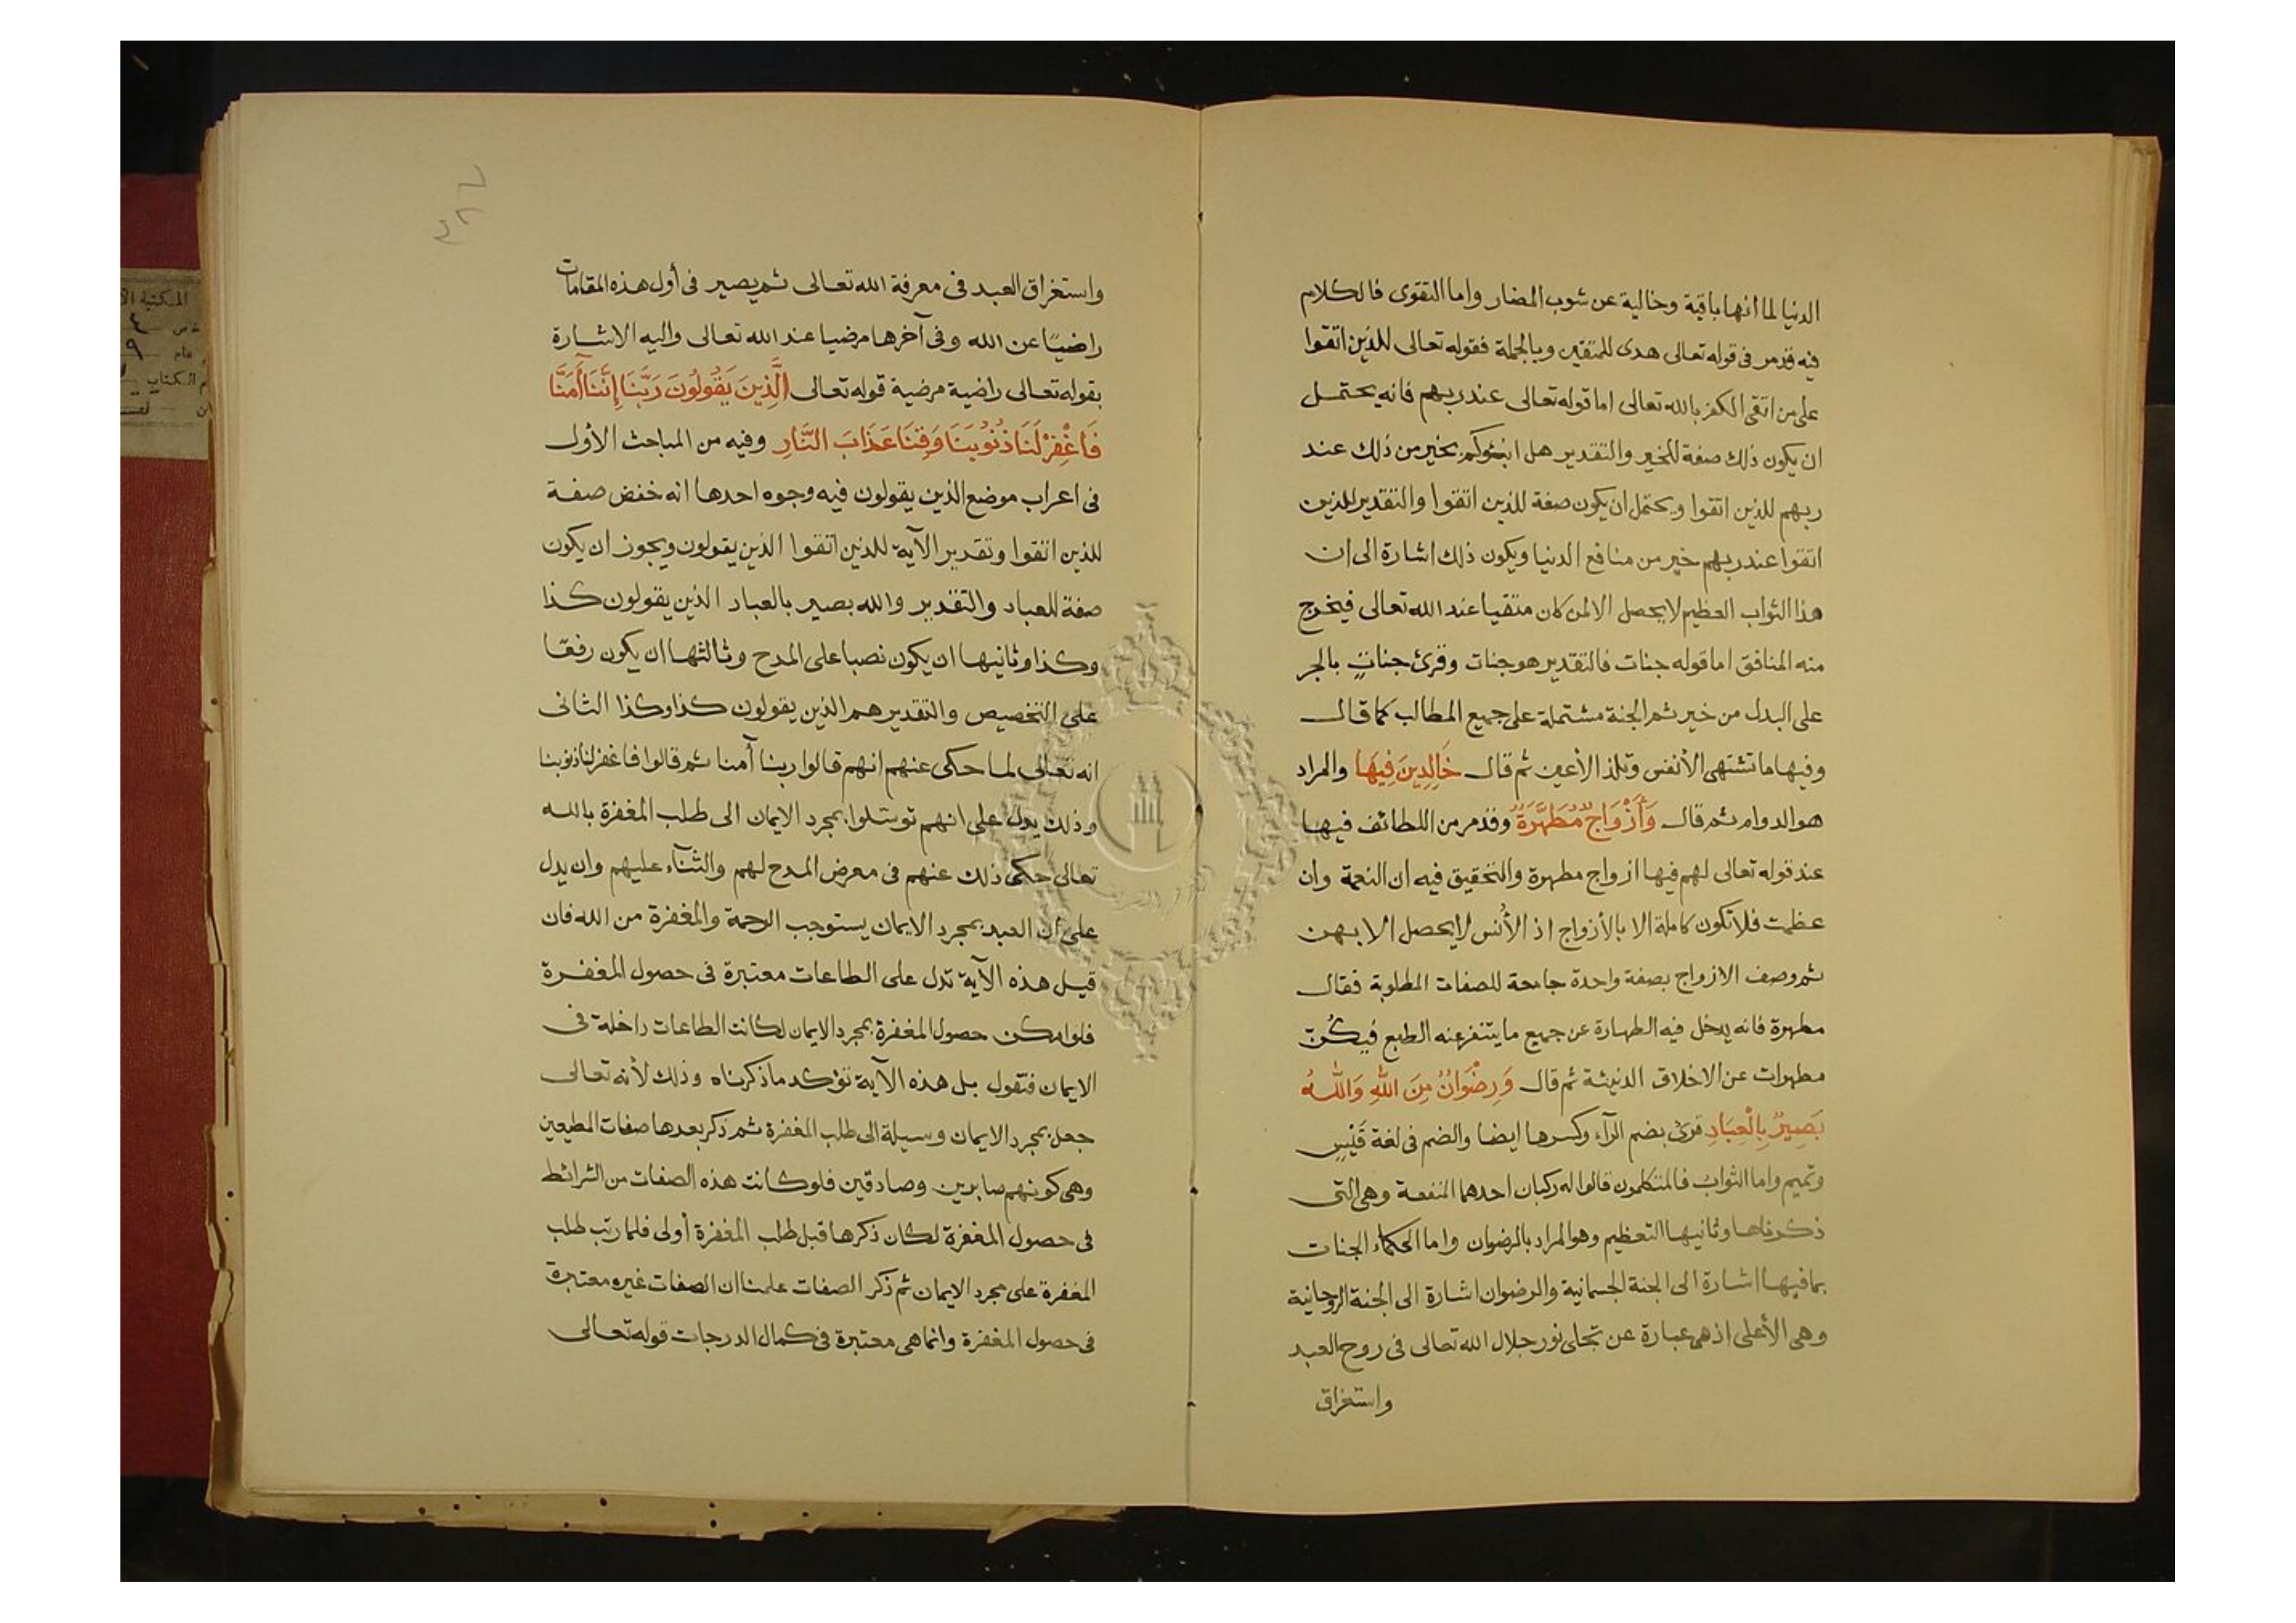 الدنيا لما انها باقية وخالية عن شوب المضار واما التقوى فالكلام
فيه قد مر فى قوله تعالى هدى للمتقين وبالجملة فقوله تعالى للذين اتقوا
على من اتقى الكفر بالله تعالى اما قوله تعالى عند ربهم فانه يحتمل
ان يكون ذلك صفة للخير والتقدير هل انبئوكم بخير من ذلك عند
ربهم للذين اتقوا ويحتمل ان يكون صفة للذين اتقوا والتقدير للذين
اتقوا عند ربهم خير من منافع الدنيا ويكون ذلك اشارة الى ان
هذا الثواب العظيم لا يحصل الا لمن كان متقيا عند الله تعالى فيخرج
منه المنافق اما قوله جنات فالتقدير هو جنات وقرئ جناتٍ بالجر
على البدل من خير ثم الجنة مشتملة على جميع المطالب كما قال
وفيها ما تشتهى الأنفس وتلذ الأعين ثم قال خَالِدِينَ فِيهَا والمراد
هو الدوام ثم قال وَأَزْوَاجٌ مُطَهَّرَةٌ وقد مر من اللطائف فيها
عند قوله تعالى لهم فيها ازواج مطهرة والتحقيق فيه ان النعمة وان
عظمت فلا تكون كاملة الا بالأزواج اذ الأُنس لا يحصل الا بهن
ثم وصف الازواج بصفة واحدة جامعة للصفات المطلوبة فقال
مطهرة فانه يدخل فيه الطهارة عن جميع ما يتنفر عنه الطبع فيكُنّ
مطهرات عن الاخلاق الدنيئة ثم قال وَرِضْوَانٌ مِنَ اللهِ وَاللهُ
بَصِيرٌ بِالْعِبَادِ قرئ بضم الرآء وكسرها ايضا والضم فى لغة قَيْسٍ
وتميم واما الثواب فالمتكلمون قالوا له ركبان احدهما المنفعة وهى التى
ذكرناها وثانيها التعظيم وهو المراد بالرضوان واما الحكماء الجنات
بما فيها اشارة الى الجنة الجسمانية والرضوان اشارة الى الجنة الروحانية
وهى الأعلى اذ هى عبارة عن تجلى نور جلال الله تعالى فى روح العبد
واستغراق
٣٨٧
واستغراق العبد فى معرفة الله تعالى ثم يصير فى أول هذه المقامات
راضيًا عن الله وفى آخرها مرضيا عند الله تعالى واليه الاشارة
بقوله تعالى راضية مرضية قوله تعالى الَّذِينَ يَقُولُونَ رَبَّنَا إِنَّنَا آمَنَّا
فَاغْفِرْ لَنَا ذُنُوبَنَا وَقِنَا عَذَابَ النَّارِ وفيه من المباحث الأول
فى اعراب موضع الذين يقولون فيه وجوه احدها انه خفض صفة
للذين اتقوا وتقدير الآية للذين اتقوا الذين يقولون ويجوز ان يكون
صفة للعباد والتقدير والله بصير بالعباد الذين يقولون كذا
وكذا وثانيها ان يكون نصبا على المدح وثالثها ان يكون رفعًا
على التخصيص والتقدير هم الذين يقولون كذا وكذا الثانى
انه تعالى لما حكى عنهم انهم قالوا ربنا آمنا ثم قالوا فاغفر لنا ذنوبنا
وذلك يدل على انهم توسّلوا بمجرد الايمان الى طلب المغفرة بالله
تعالى حكى ذلك عنهم فى معرض المدح لهم والثنآء عليهم وان يدل
على ان العبد بمجرد الايمان يستوجب الرحمة والمغفرة من الله فان
قيل هذه الآية تدل على الطاعات معتبرة فى حصول المغفرة
فلو امكن حصول المغفرة بمجرد الايمان لكانت الطاعات داخلة فى
الايمان فتقول بل هذه الآية تؤكد ما ذكرناه وذلك لأنه تعالى
جعل بمجرد الايمان وسيلة الى طلب المغفرة ثم ذكر بعدها صفات المطيعين
وهى كونهم صابرين وصادقين فلو كانت هذه الصفات من الشرائط
فى حصول المغفرة لكان ذكرها قبل طلب المغفرة أولى فلما رتب طلب
المغفرة على مجرد الايمان ثم ذكر الصفات علمنا ان الصفات غيره معتبرة
فى حصول المغفرة وانما هى معتبرة فى كمال الدرجات قوله تعالى